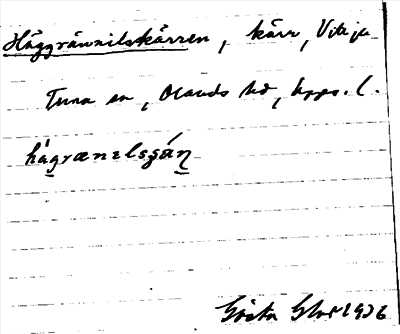 Häggrännilskärren, kärr, Vik ja
Tuna sn, Olands hd, Upps. l.
hágrænelsʂáṉ
Gösta 1936